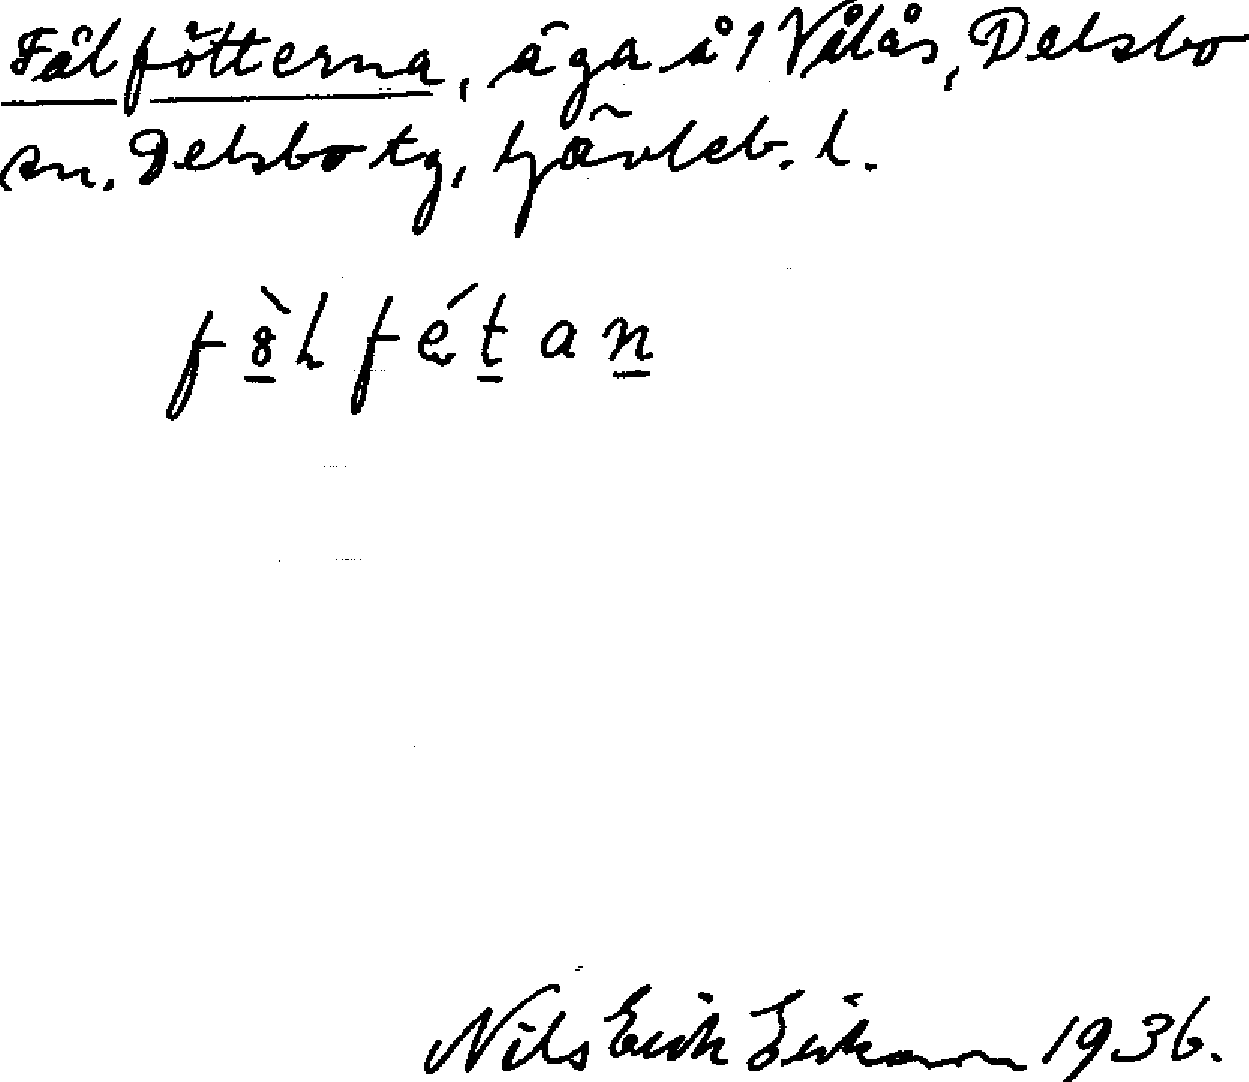 Fälfötterna, äga å 1 Vålås, Delsbo
sn. Delsbo tg, Gävleb. l.
Nils Erik Eriksson 1936.